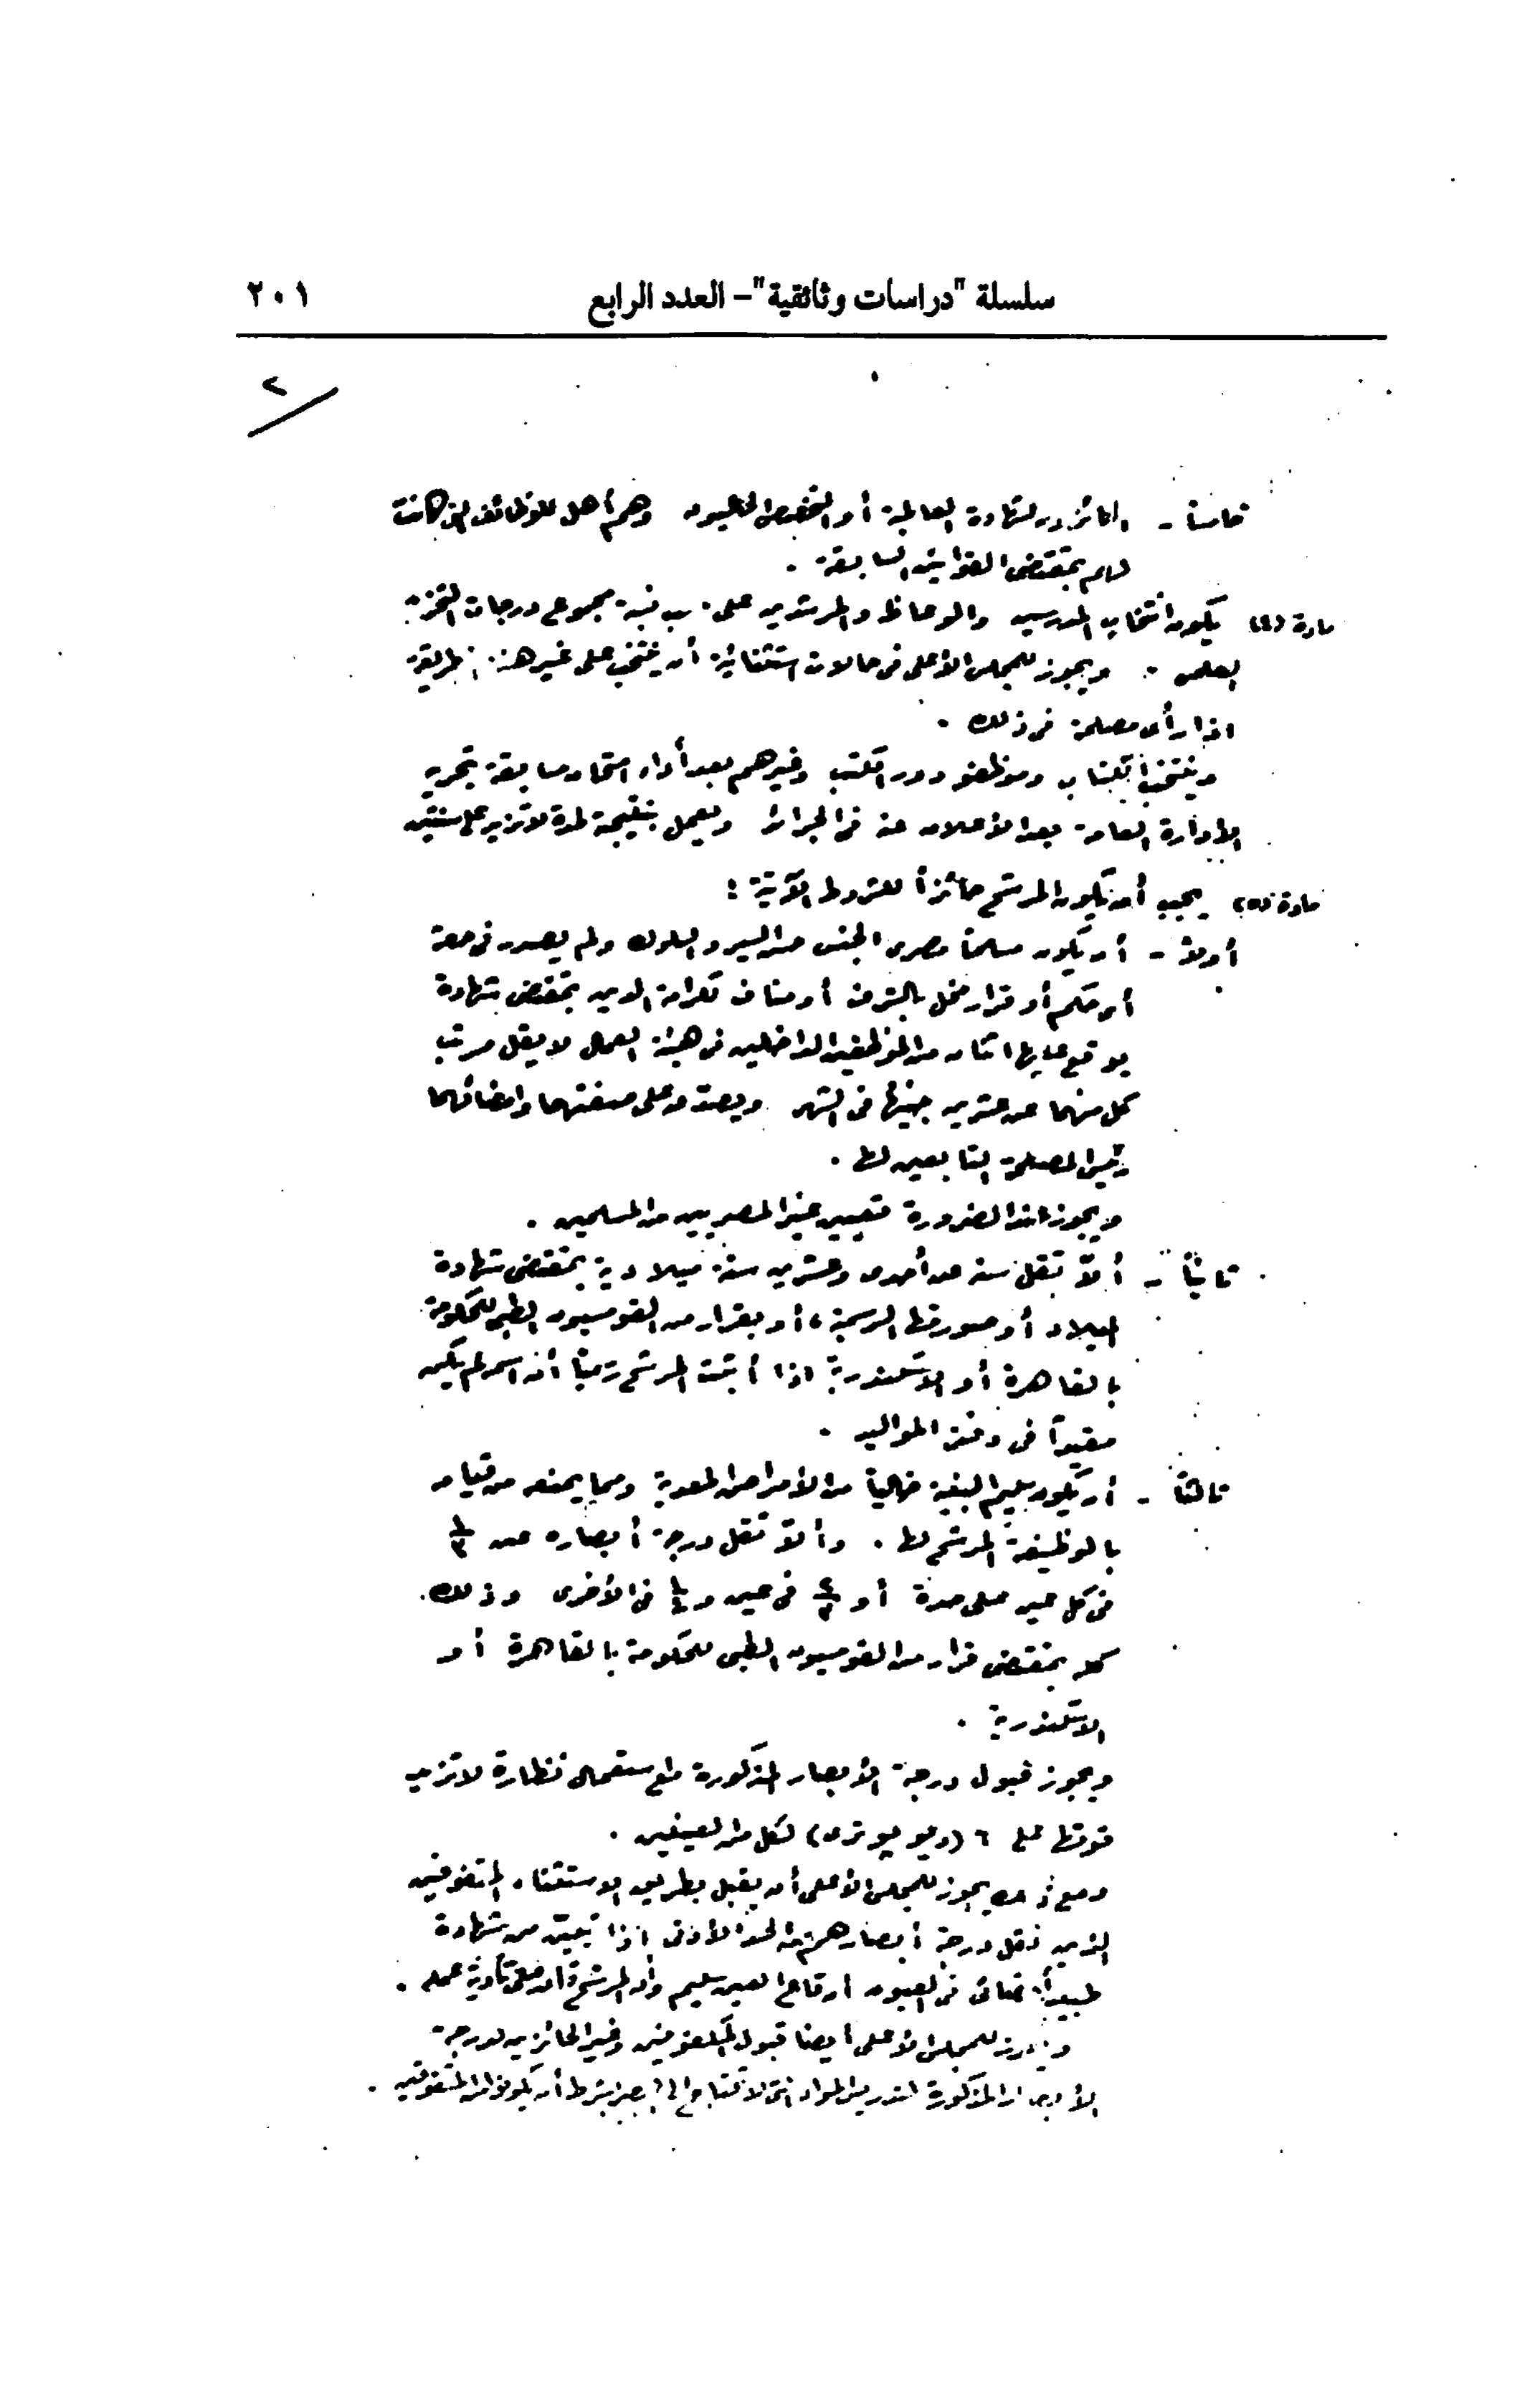 سلسلة "دراسات وثائقية" – العدد الرابع ٢٠١
٢
خامساً - الحائزون لشهادة العالمية أو التخصص الحاليون وهم أهل للوظائف التى كانت
لهم بمقتضى القوانين السابقة .
مادة (٤) يكون انتخاب المدرسين والوعاظ والمرشدين على نسبة مجموع درجات التخرج
العلمى . ويجوز للمجلس الأعلى فى حالات استثنائية أن ينتخب على غير هذه الطريقة
اذا رأى مصلحة فى ذلك .
وينتخب الكتاب وموظفو دور الكتب وغيرهم بعد أداء امتحان مسابقة تجريه
الإدارة العامة بعد الأعلان عنه فى الجرائد ويعمل بنتيجته لمدة لا تزيد على سنتين
مادة (٥) يجب أن يكون المرشح حائزاً للشروط الآتية :
أولاً - أن يكون مسلماً مصرى الجنس حسن السير والسلوك ولم يصدر فى حقه
أى حكم أو قرار مخل بالشرف أو مناف لكرامة الدين بمقتضى شهادة
يوقع عليها اثنان من الموظفين الداخلين فى هيئة العمال لا يقل مرتب
كل منهما عن عشرين جنيهاً فى الشهر ويصدق على صفتهما وامضائهما
رئيس المصلحة التابعين لها .
ويجوز عند الضرورة تعيين غير المصريين من المسلمين .
ثانياً - ألاّ تقل سنه عن أحدى وعشرين سنة ميلادية بمقتضى شهادة
الميلاد أو صورتها الرسمية ، أو بقرار من القومسيون الطبى للحكومة
بالقاهرة أو الاسكندرية اذا أثبت المرشح رسمياً أن اسمه لم يكن
مقيداً فى دفتر المواليد .
ثالثاً - أن يكون سليم البنية خالياً من الأمراض المعدية ومما يمنعه من قيامه
بالوظيفة المرشح لها . وألاّ تقل درجة أبصاره عن
فى كل عين على حدة أو فى عين و فى الأخرى وذلك
كله بمقتضى قرار من القومسيون الطبى للحكومة بالقاهرة أو
الاسكندرية .
ويجوز قبول درجة الأبصار المذكورة مع استعمال نظارة لا تزيد
قوتها على ٦ (ديوبيوترى) لكل من العينين .
ومع ذلك يجوز للمجلس الأعلى أن يقبل بطريق الاستثناء المتفوقين
الذين تقل درجة أبصارهم عن الحد الأدنى إذا تبين من شهادة
طبيب أخصائى فى العيون أن قاع العين سليم وأن المرشح قادر على تأدية عمله .
ويجوز للمجلس الأعلى أيضا قبول المكفوفين وغير الحائزين لدرجة
الأبصار المذكورة لتدريس المواد التى لا تحتاج الى بصر بشرط أن يكونوا من المتفوقين .